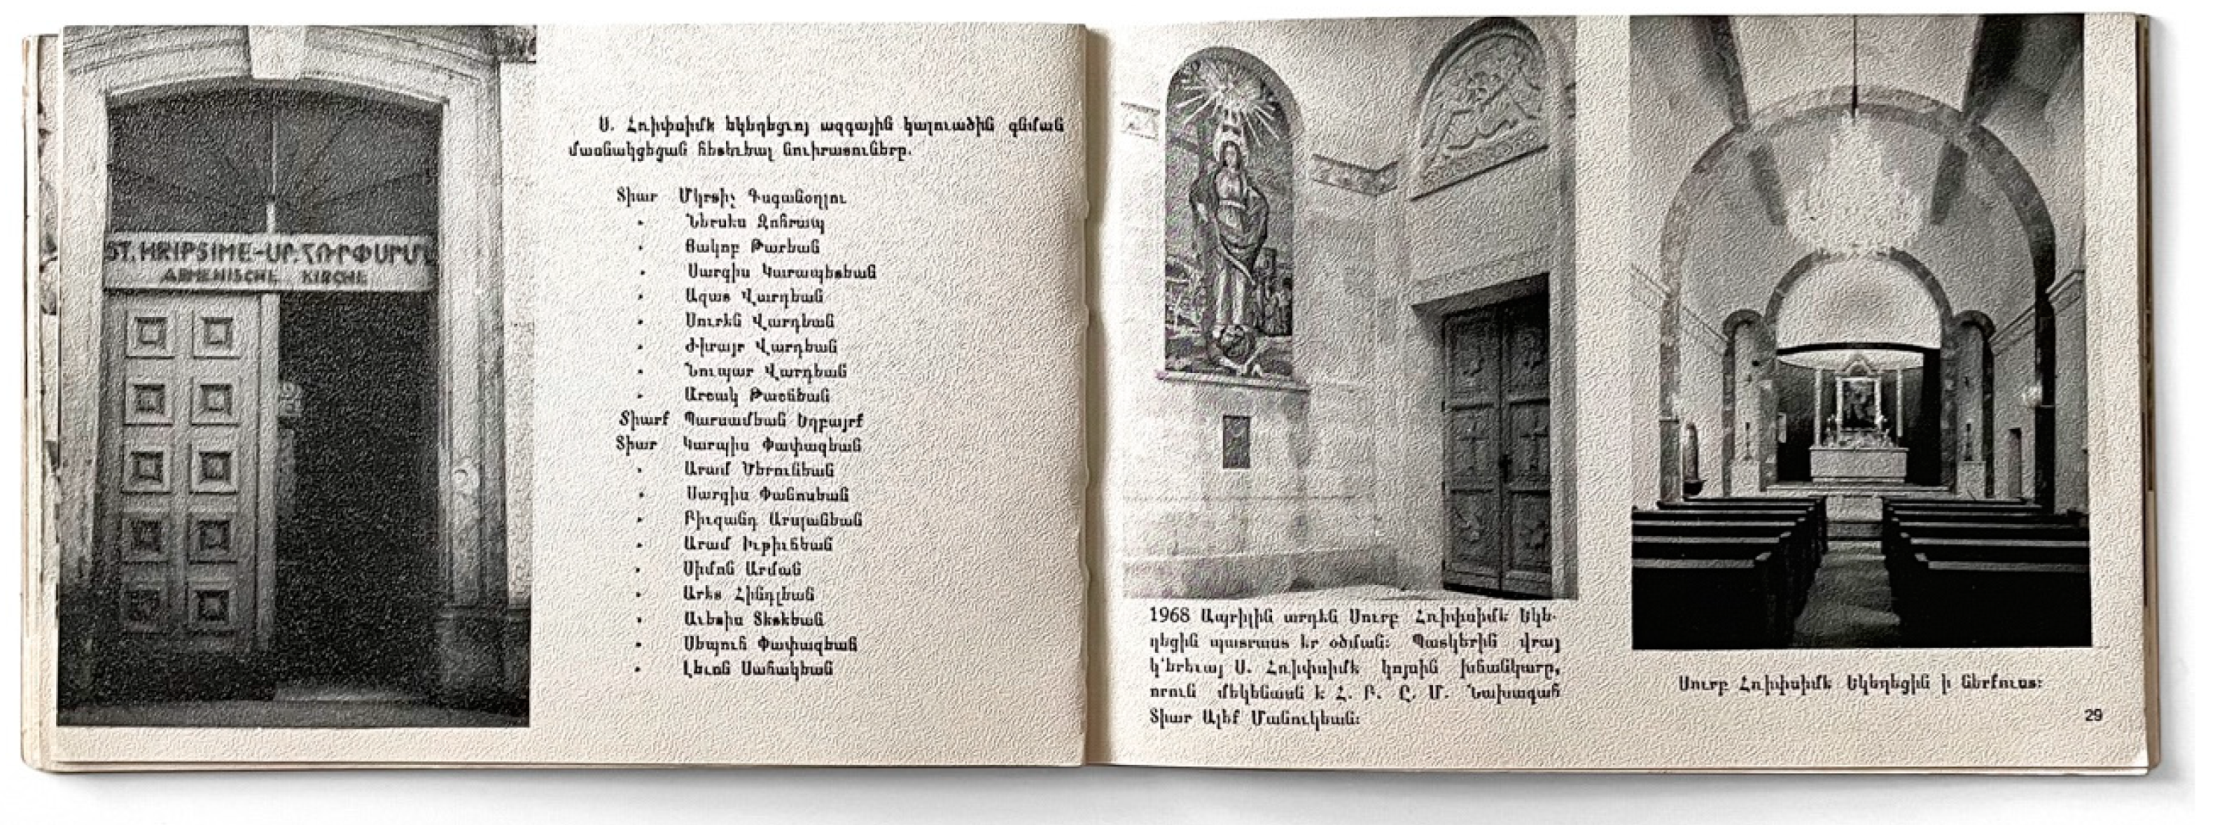 ST. HRIPSIME-ՍՐ. ՀՌԻՓՍԻՄԷ
ARMENISCHE KIRCHE
Ս. Հռիփսիմէ եկեղեցւոյ ազգային կալուածին գնման
մասնակցեցան հետեւեալ նուիրատուները.
Տիար Մկրտիչ Գազանօղլու
" Ներսէս Զոհրապ
" Յակոբ Թարեան
" Սարգիս Կարապետեան
" Ազատ Վարդեան
" Սուրէն Վարդեան
" Ժիրայր Վարդեան
" Նուպար Վարդեան
" Արշակ Թաշճեան
Տիարք Պարսամեան Եղբայրք
Տիար Կարպիս Փափազեան
" Արամ Սերունեան
" Սարգիս Փանոսեան
" Բիւզանդ Արսլանեան
" Արամ
" Սիմոն Արման
" Արետ Հինդլեան
" Աւետիս Տետեեան
" Սեպուհ Փափազեան
" Լեւոն Սահակեան
1968 Ապրիլին արդէն Սուրբ Հռիփսիմէ եկե-
ղեցին պատրաստ էր օծման։ Պատկերին վրայ
կ'երեւայ Ս. Հռիփսիմէ կոյսին խճանկարը,
որուն մեկենասն է Հ. Բ. Ը. Մ. Նախագահ
Տիար Ալեք Մանուկեան։
Սուրբ Հռիփսիմէ եկեղեցին ի ներքուստ։
29